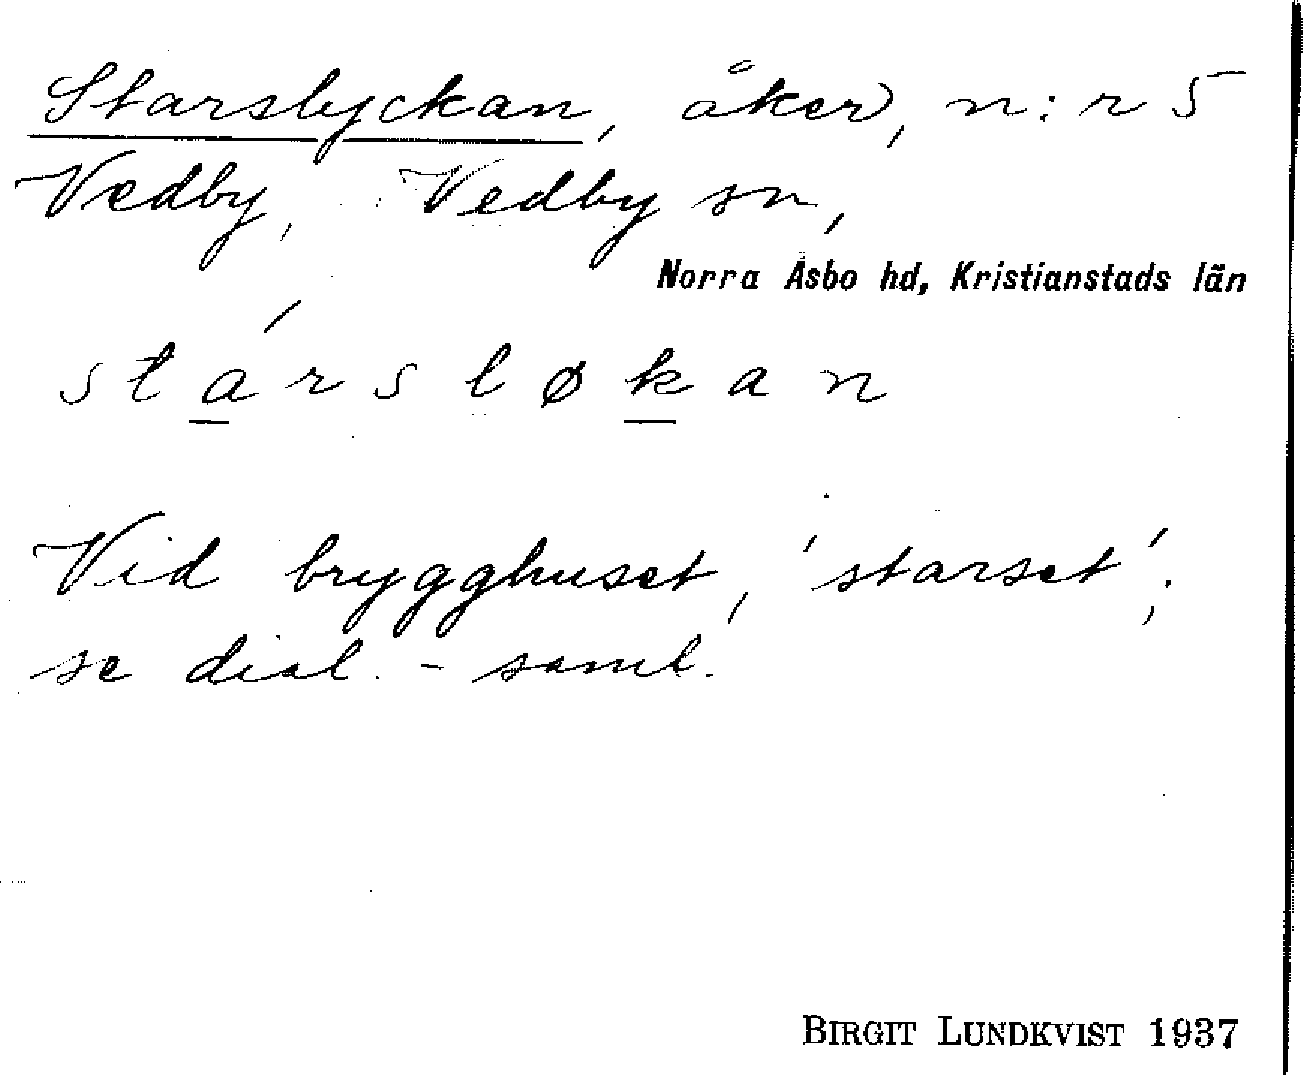 Starslyckan, åker, n:r 5
Vedby, Vedby sn,
Norra Åsbo hd, Kristianstads län
stársløkan
Vid brygghuset, 'starset';
se dial.-saml.
BIRGIT LUNDKVIST 1937